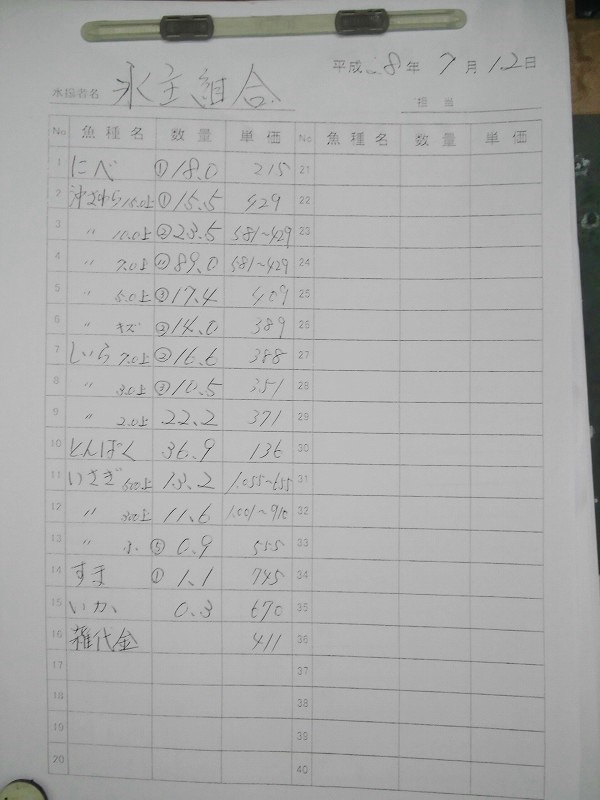 平成28年 7月12日
水揚者名 氷主組合
担当
No 魚種名 数量 単価 No 魚種名 数量 単価
1 にべ ①18.0 215 21
2 沖さわら10.0上 ①15.5 429 22
3 〃 10.0上 ②23.5 581~429 23
4 〃 7.0上 ⑪89.0 581~429 24
5 〃 5.0上 ③17.4 409 25
6 〃 キズ ②14.0 389 26
7 しいら 7.0上 ②16.6 388 27
8 〃 3.0上 ③10.5 351 28
9 〃 2.0上 22.2 371 29
10 とんぼく 36.9 136 30
11 いさぎ 500上 13.2 1,055~655 31
12 〃 300上 11.6 1,001~910 32
13 〃 ⑤ 0.9 555 33
14 すま ① 1.1 745 34
15 いか 0.3 670 35
16 雑代金 411 36
17 37
18 38
19 39
20 40